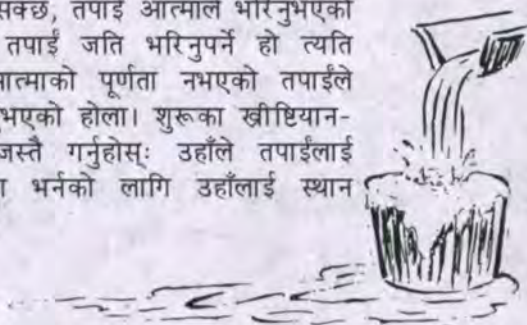 सक्छ, तपाईं आत्माले भरिनुभएको
तपाईं जति भरिनुपर्ने हो त्यति
आत्माको पूर्णता नभएको तपाईंले
भएको होला। शुरूका ख्रीष्टियान-
जस्तै गर्नुहोस्ः उहाँले तपाईंलाई
भर्नको लागि उहाँलाई स्थान